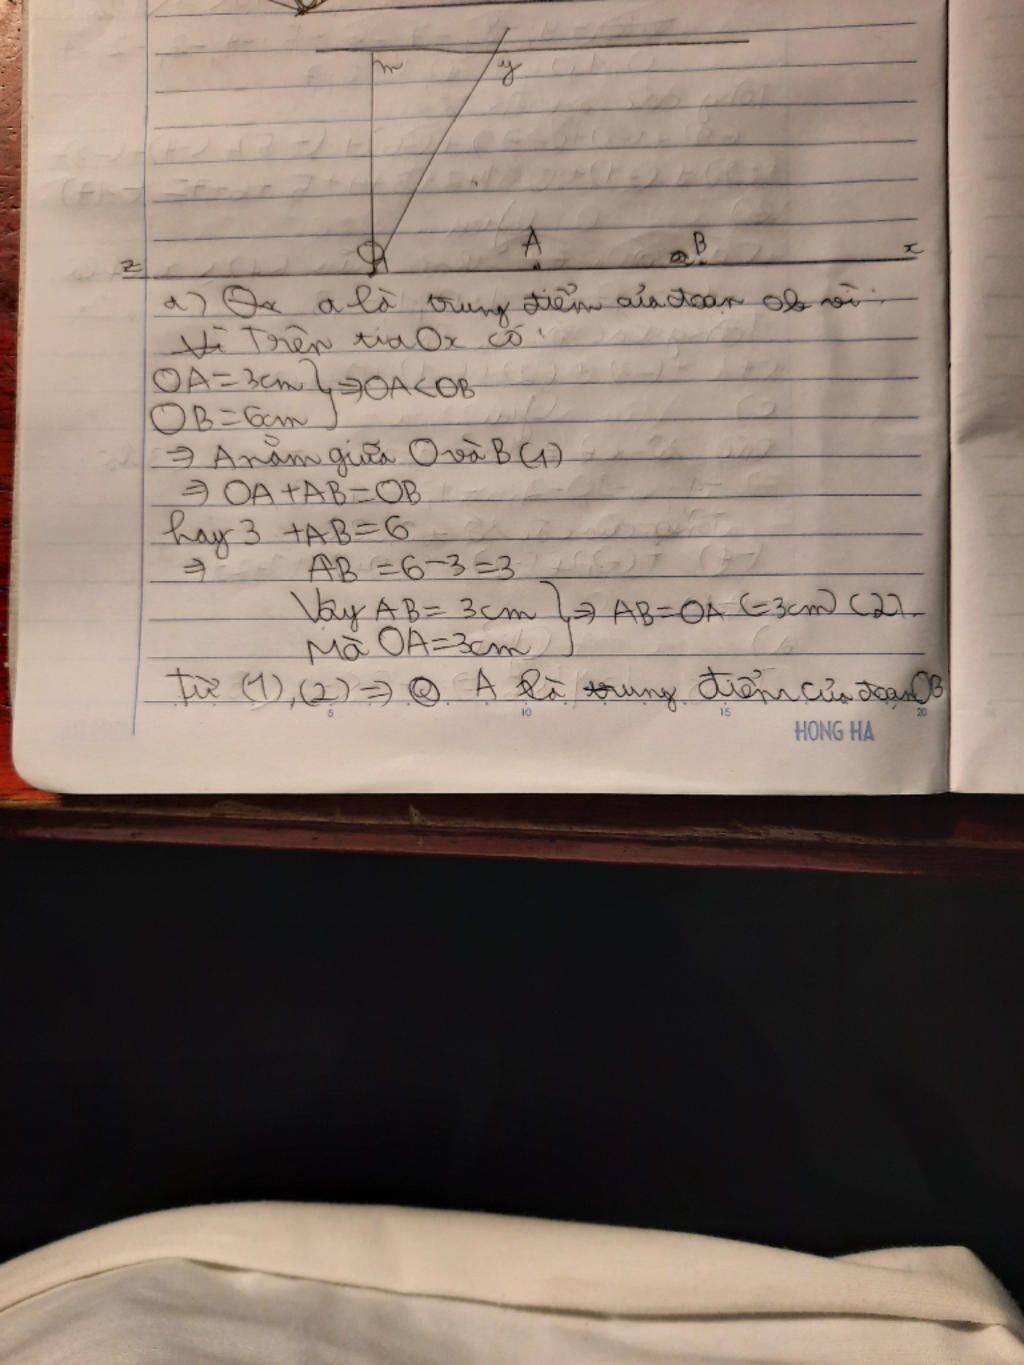 m y
A B
z O x
a) Ox a là trung điểm của đoạn ob vì:
Vì Trên tia Ox có:
OA=3cm } ⇒OA<OB
OB=6cm
⇒ A nằm giữa O và B (1)
⇒ OA+AB=OB
hay 3 +AB=6
⇒ AB =6-3=3
Vậy AB= 3cm } ⇒ AB=OA (=3cm) (2).
Mà OA=3cm
Từ (1),(2) ⇒ A là trung điểm của đoạn OB
5 10 15 20
HONG HA